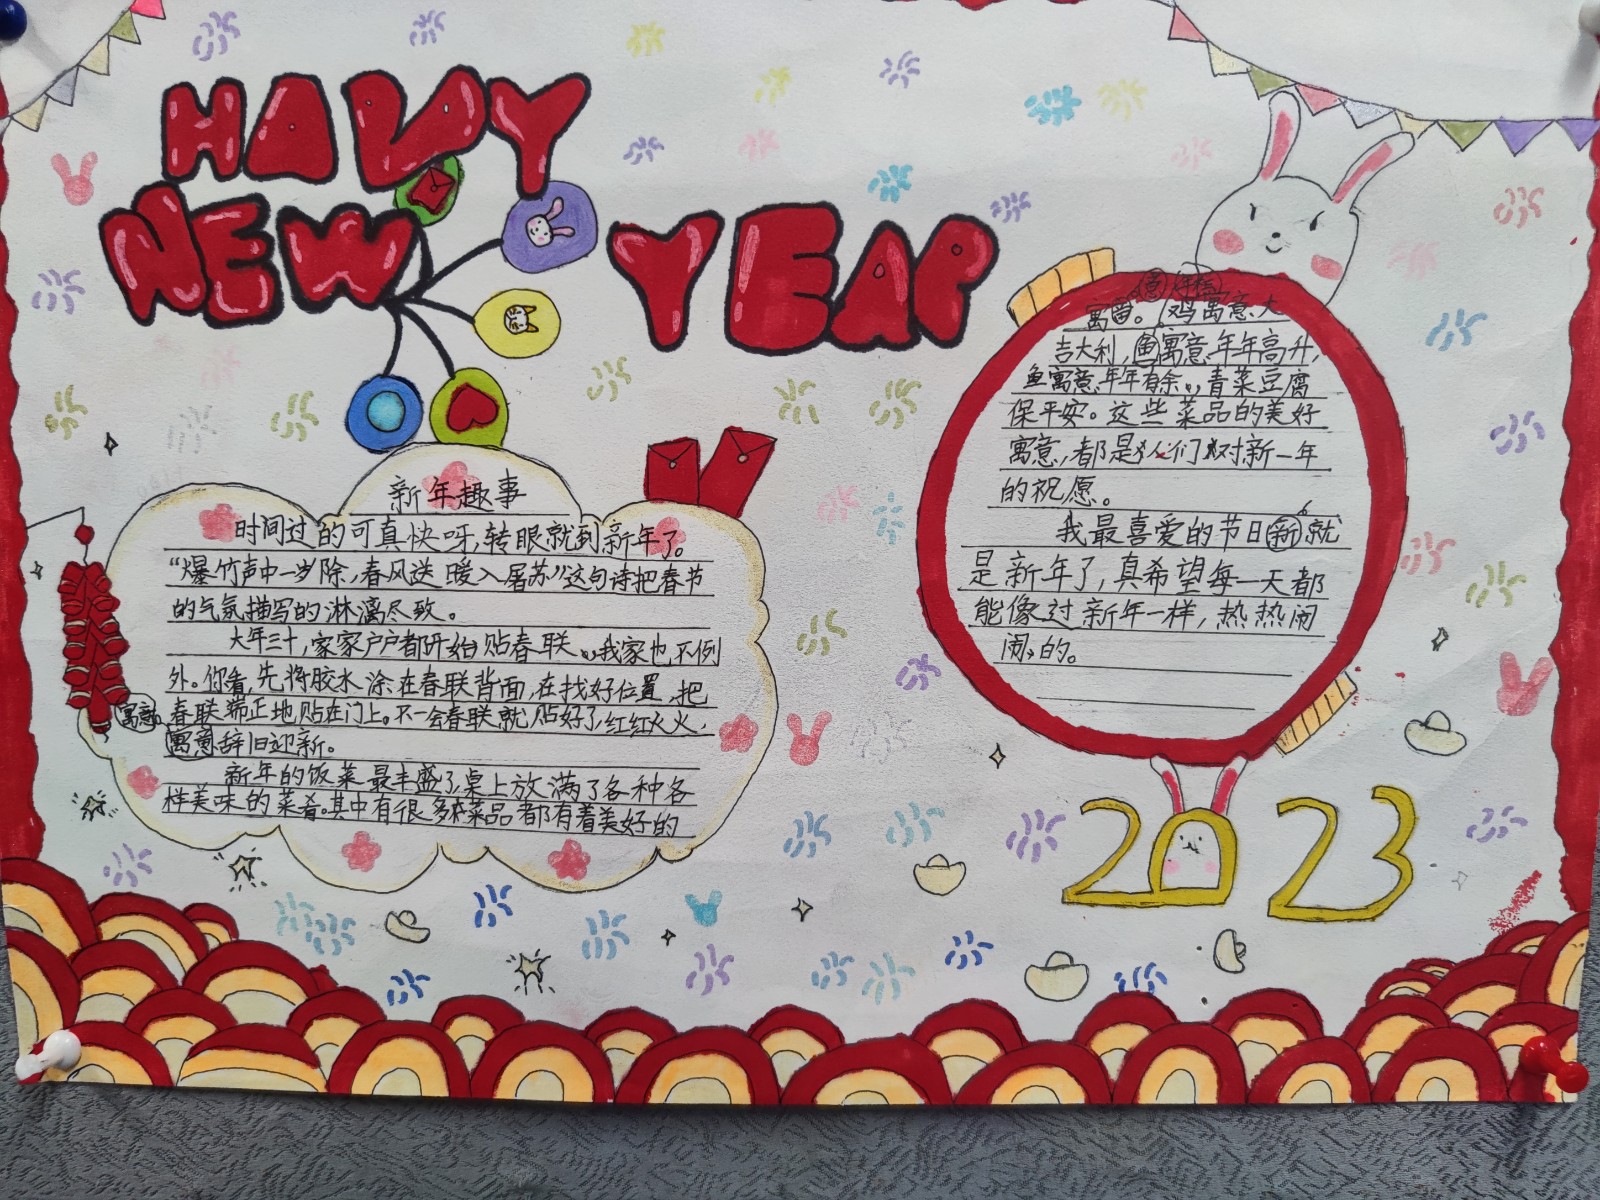 HAPPY
NEW YEAR
新年趣事
时间过的可真快呀,转眼就到新年了。
“爆竹声中一岁除,春风送暖入屠苏”这句诗把春节
的气氛描写的淋漓尽致。
大年三十,家家户户都开始贴春联,我家也不例
外。你看,先将胶水涂在春联背面,在找好位置,把
春联端正地贴在门上。不一会春联就贴好了,红红火火,
寓意辞旧迎新。
寓意
新年的饭菜最丰盛了,桌上放满了各种各
样美味的菜肴。其中有很多菜品都有着美好的
鱼 年糕
寓意。鸡寓意大
吉大利,鱼寓意年年高升,
鱼寓意年年有余,青菜豆腐
保平安。这些菜品的美好
寓意,都是人们对新一年
的祝愿。
我最喜爱的节日新就
是新年了,真希望每一天都
能像过新年一样,热热闹
闹的。
2023